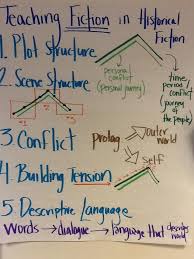 Teaching Fiction in Historical
Fiction
1. Plot Structure
personal
conflict
(personal journey)
time
period
conflict
(journey
of the
people)
2. Scene Structure
3 Conflict
Protag
outer
world
self
4. Building Tension
5. Descriptive Language
Words → dialogue → language that describes
world